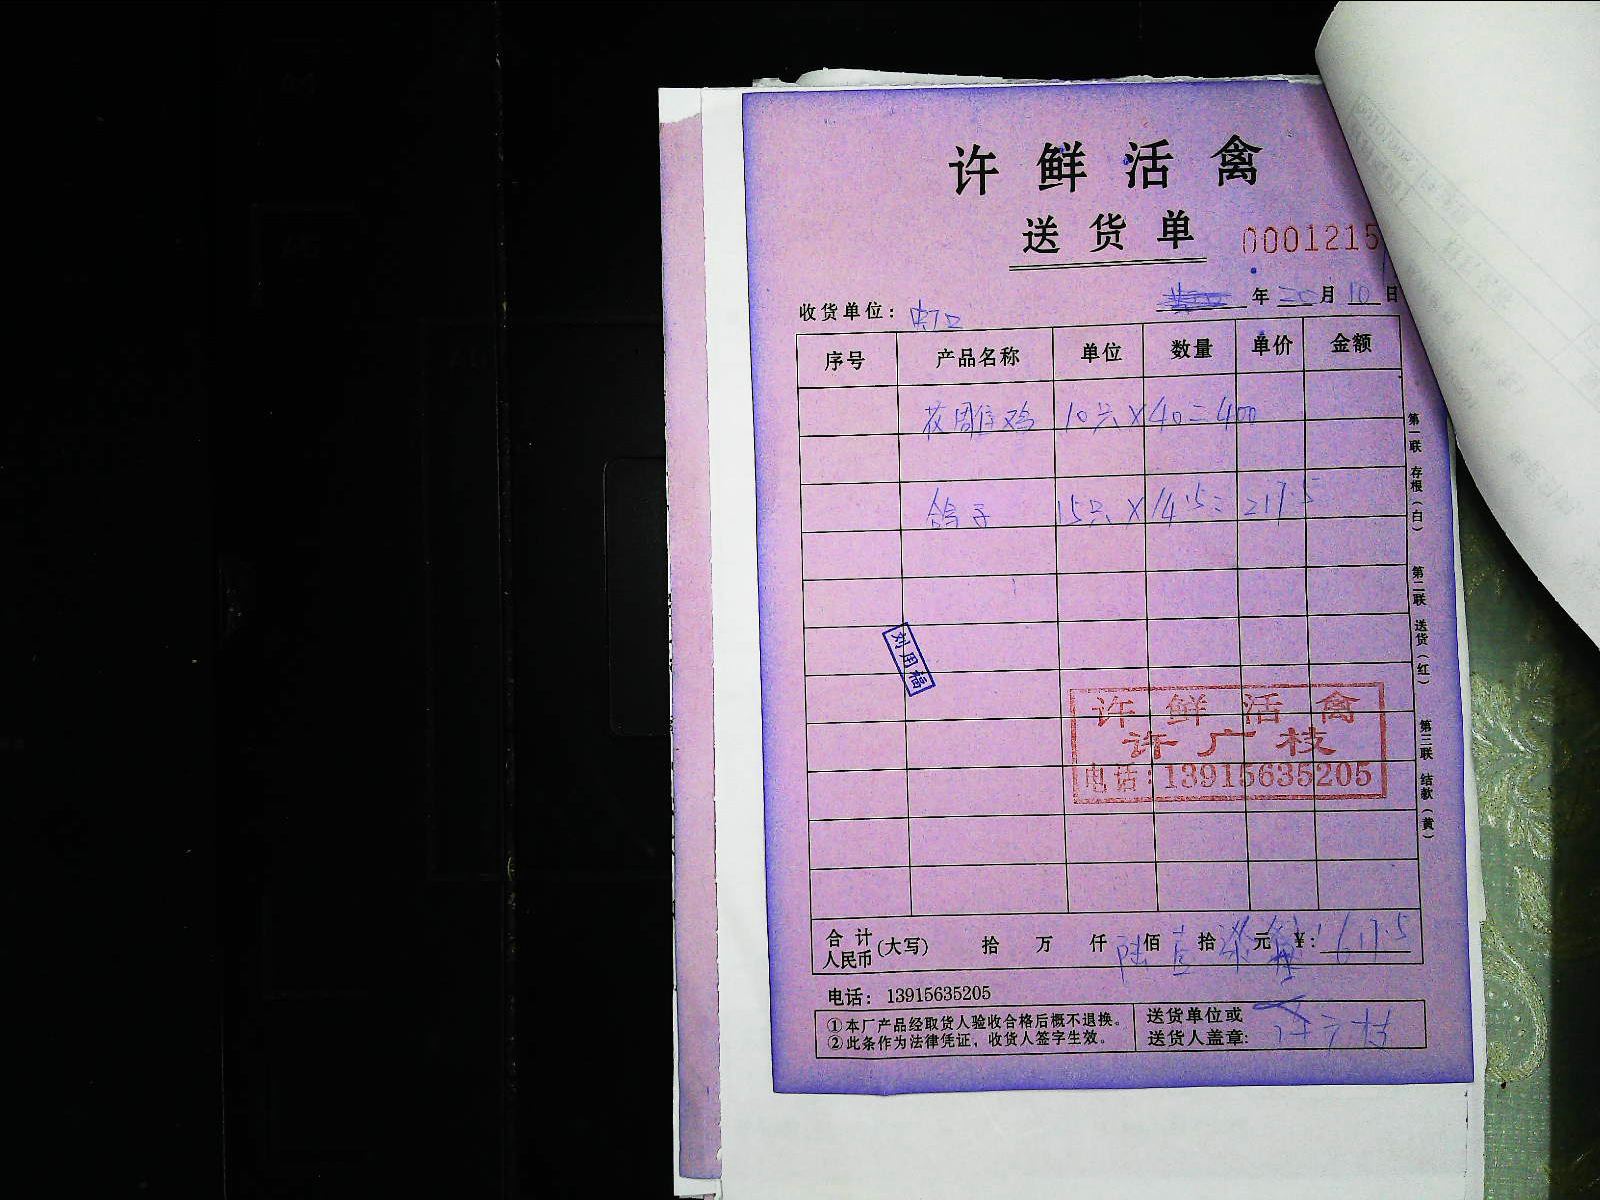 许鲜活禽
送货单
0001215
收货单位： 虹口 年 月 10 日
序号 产品名称 单位 数量 单价 金额
花雕鸡 10只×40=400
鸽子 15只×14.5=217.5
刘用福
许鲜活禽
许广枝
电话：13915635205
合计人民币(大写) 拾 万 仟 陆佰 壹拾 柒元 ¥: 617.5
电话： 13915635205
①本厂产品经取货人验收合格后概不退换。
②此条作为法律凭证，收货人签字生效。
送货单位或
送货人盖章: 许广枝
第一联 存根（白） 第二联 送货（红） 第三联 结款（黄）